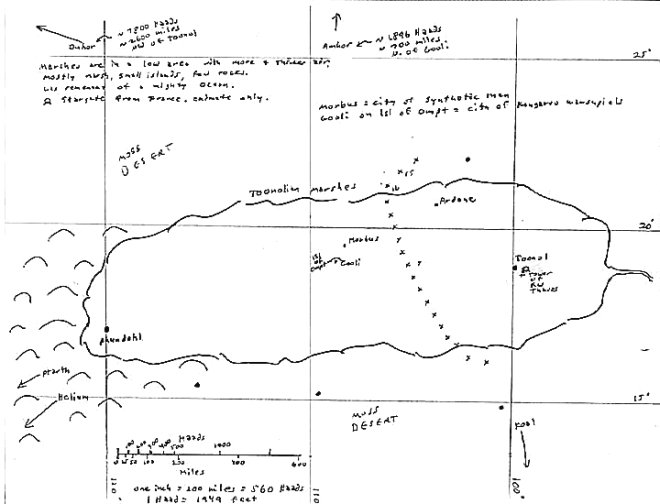 ≈ 7800 Haads
≈ 2600 miles
NW of Toonol
Amhor
≈ 1896 Haads
≈ 700 miles
N. of Gooli
Amhor
25°
Marshes are in a low area with more + thicker air,
mostly mush, small islands, few rocks.
Last remnant of a mighty Ocean.
Ω Stargate from France, animate only.
Morbus = city of synthetic men
Gooli on Isl of Ompt = city of Kangaroo marsupials
Moss
DESERT
15
16
Toonolian Marshes
Ardane
20°
Morbus
Isl
of
Ompt
Gooli
Toonol
Ω
Tower
of
Thavas
Phundahl
Ptarth
Helium
15°
Moss
DESERT
Kaol
Haads
Miles
one inch = 200 miles = 560 Haads
1 Haad = 1949 Feet
120
110
100°